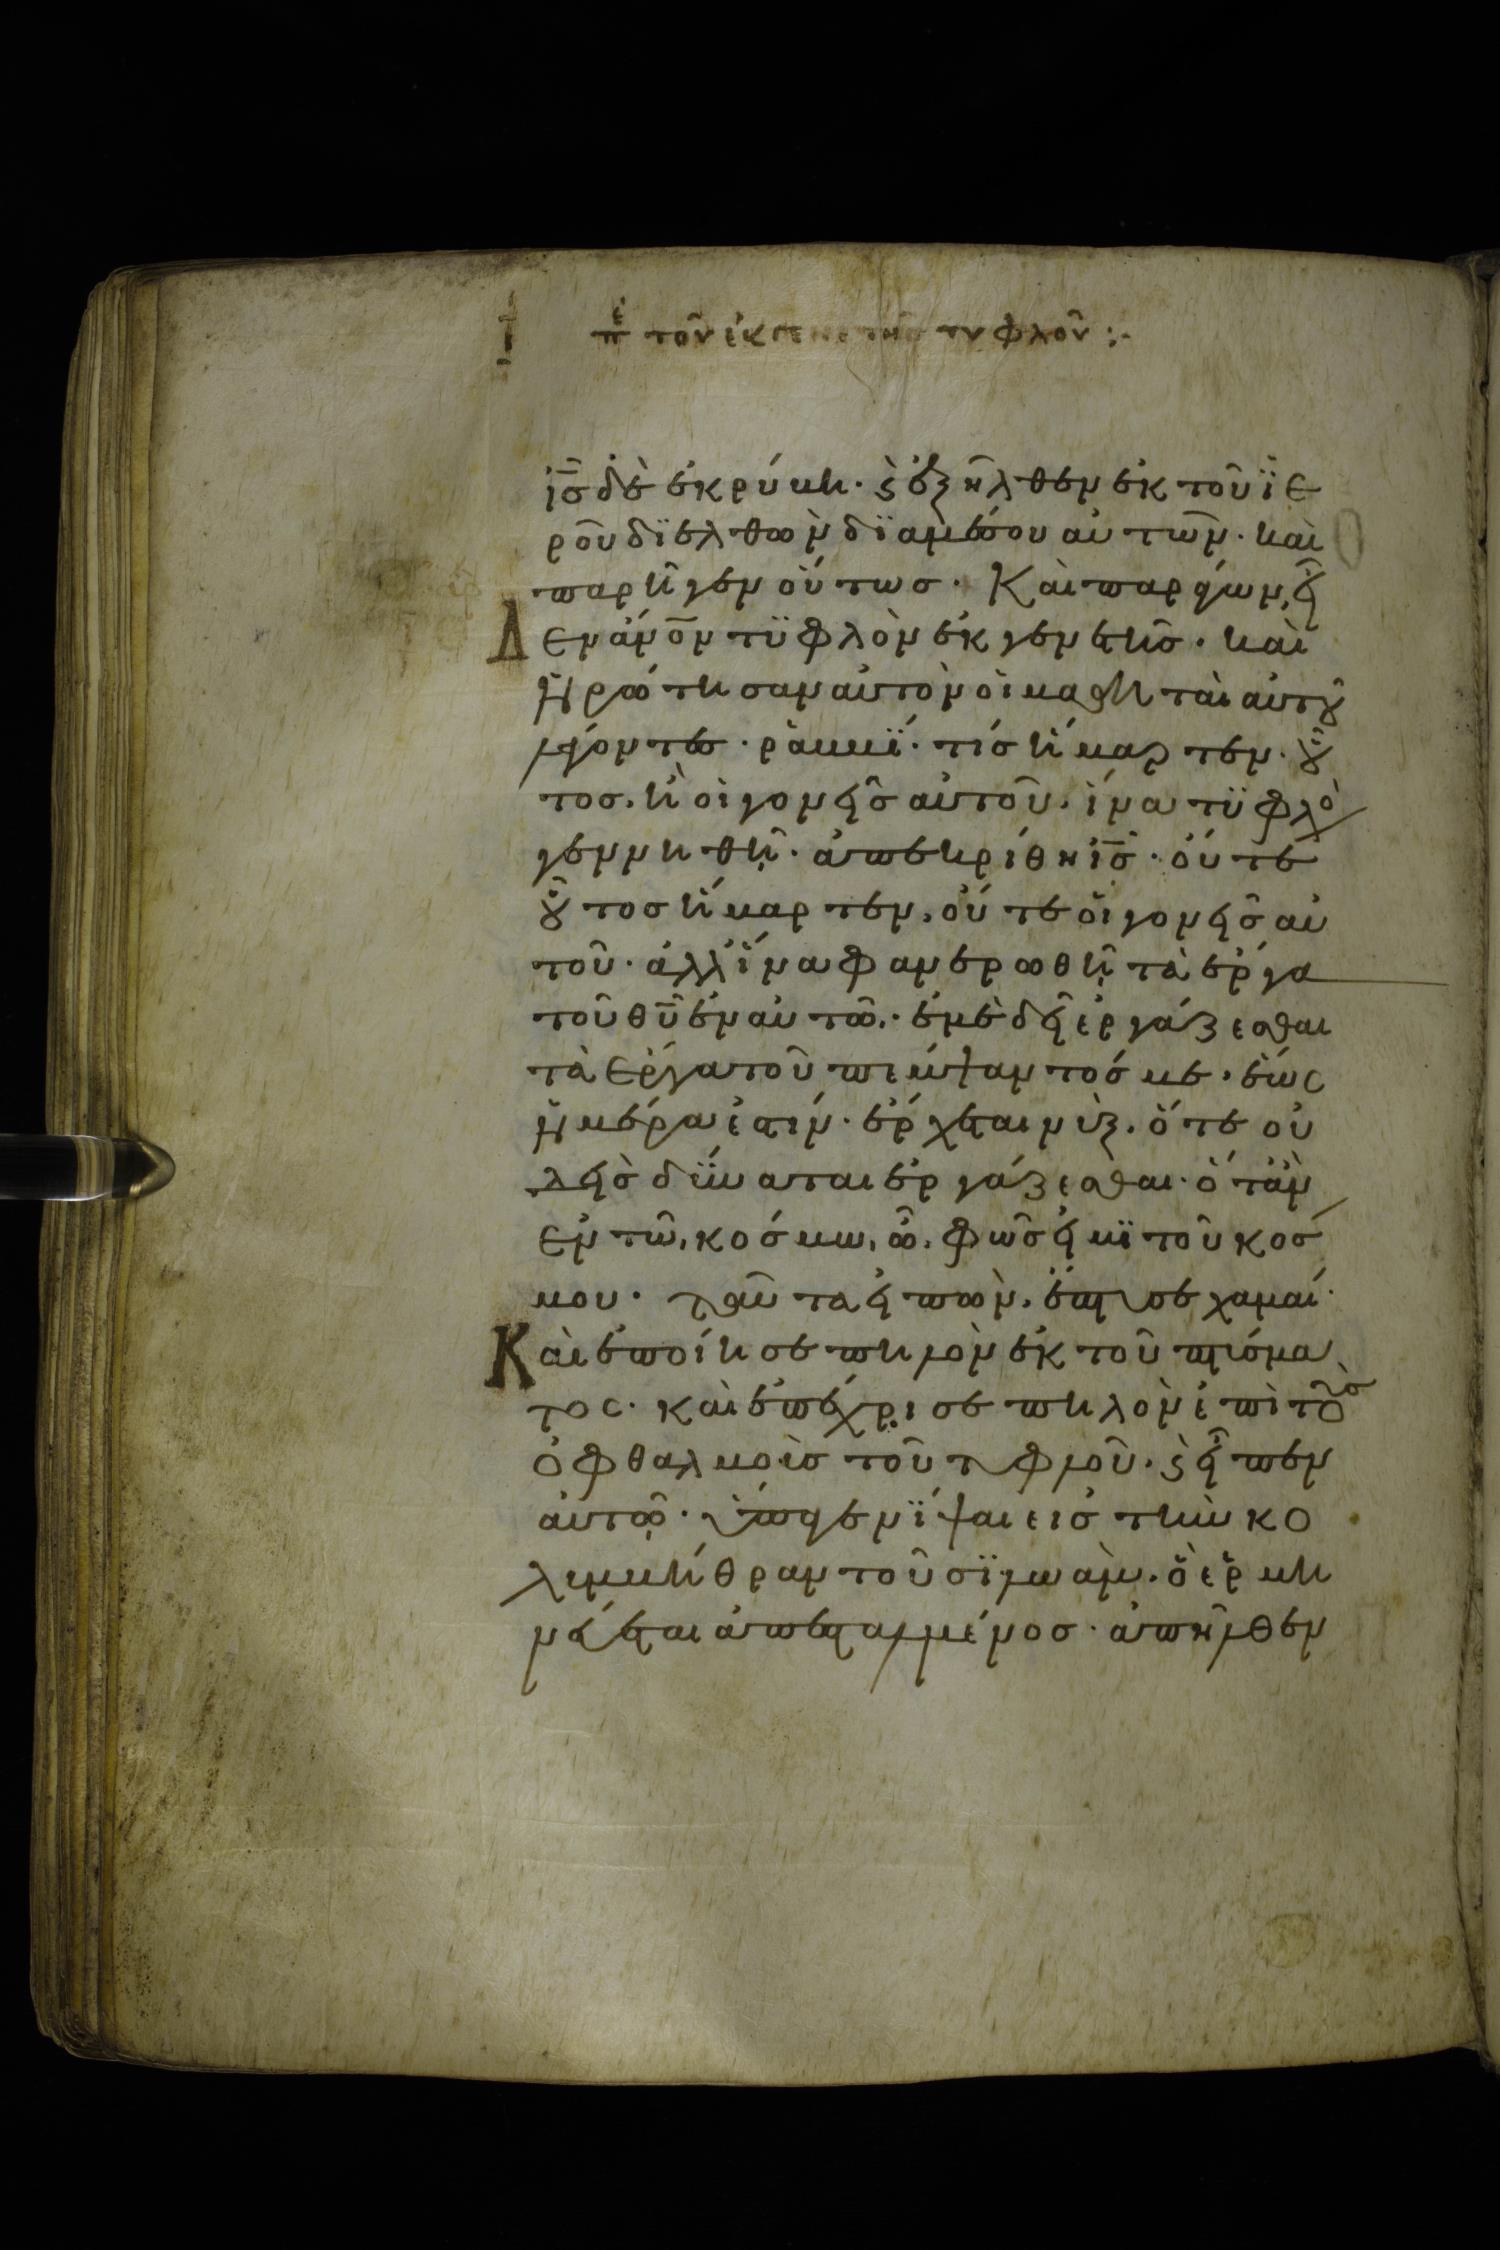 πε τοῦ ἐκ γενετῆς τυφλοῦ :-
ι̅σ̅ δὲ ἐκρύβη· ϛ ἐξῆλθεν ἐκ τοῦ ϊε
ροῦ δϊελθὼν δϊαμέσου αὐτῶν· καὶ
παρῆγεν οὕτωσ· Καὶ παράγων, εἶ
δεν ἄν̅ο̅ν τϋφλὸν ἐκ γενετῆσ· καὶ
ἠρώτησαν αὐτὸν οἱ μαθηταὶ αὐτοῦ
λέγοντες· ῥαββϊ· τίσ ἥμαρτεν· οὗ
τοσ. ἢ οἱ γονεῖσ αὐτοῦ. ἵνα τϋφλὸ
γεννηθῆ· ἀπεκρίθη ι̅σ̅· οὔτε
οὗτοσ ἥμαρτεν. οὔτε οἱ γονεῖσ αὐ
τοῦ· ἀλλ ἵνα φανερωθῆ τὰ ἔργα
τοῦ θ̅υ̅ ἐν αὐτῶ· ἐμὲ δεῖ ἐργάζεσθαι
τὰ ἔργα τοῦ πέμψαντόσ με. ἕως
ἡμέρα ἐστίν· ἔρχεται νὺξ. ὅτε οὐ
δεὶσ δύναται ἐργάζεσθαι· ὅταν
ἐν τῶ κόσμω, ὦ. φῶσ εἰμϊ τοῦ κόσ
μου· ταῦτα εἰπὼν. ἔπτυσε χαμαί·
Καὶ ἐποίησε πηλὸν ἐκ τοῦ πτύσμα
τος· καὶ ἐπέχρισε πηλὸν ἐπὶ τοὺσ
ὀφθαλμοὺσ τοῦ τυφλοῦ. ϛ εἶπεν
αὐτῶ· ὕπαγε νϊψαι εισ τὴν κο
λυμβήθραν τοῦ σϊλωάμ. ὃ ἑρμη
νεύεται ἀπεσταλμένοσ· ἀπῆλθεν